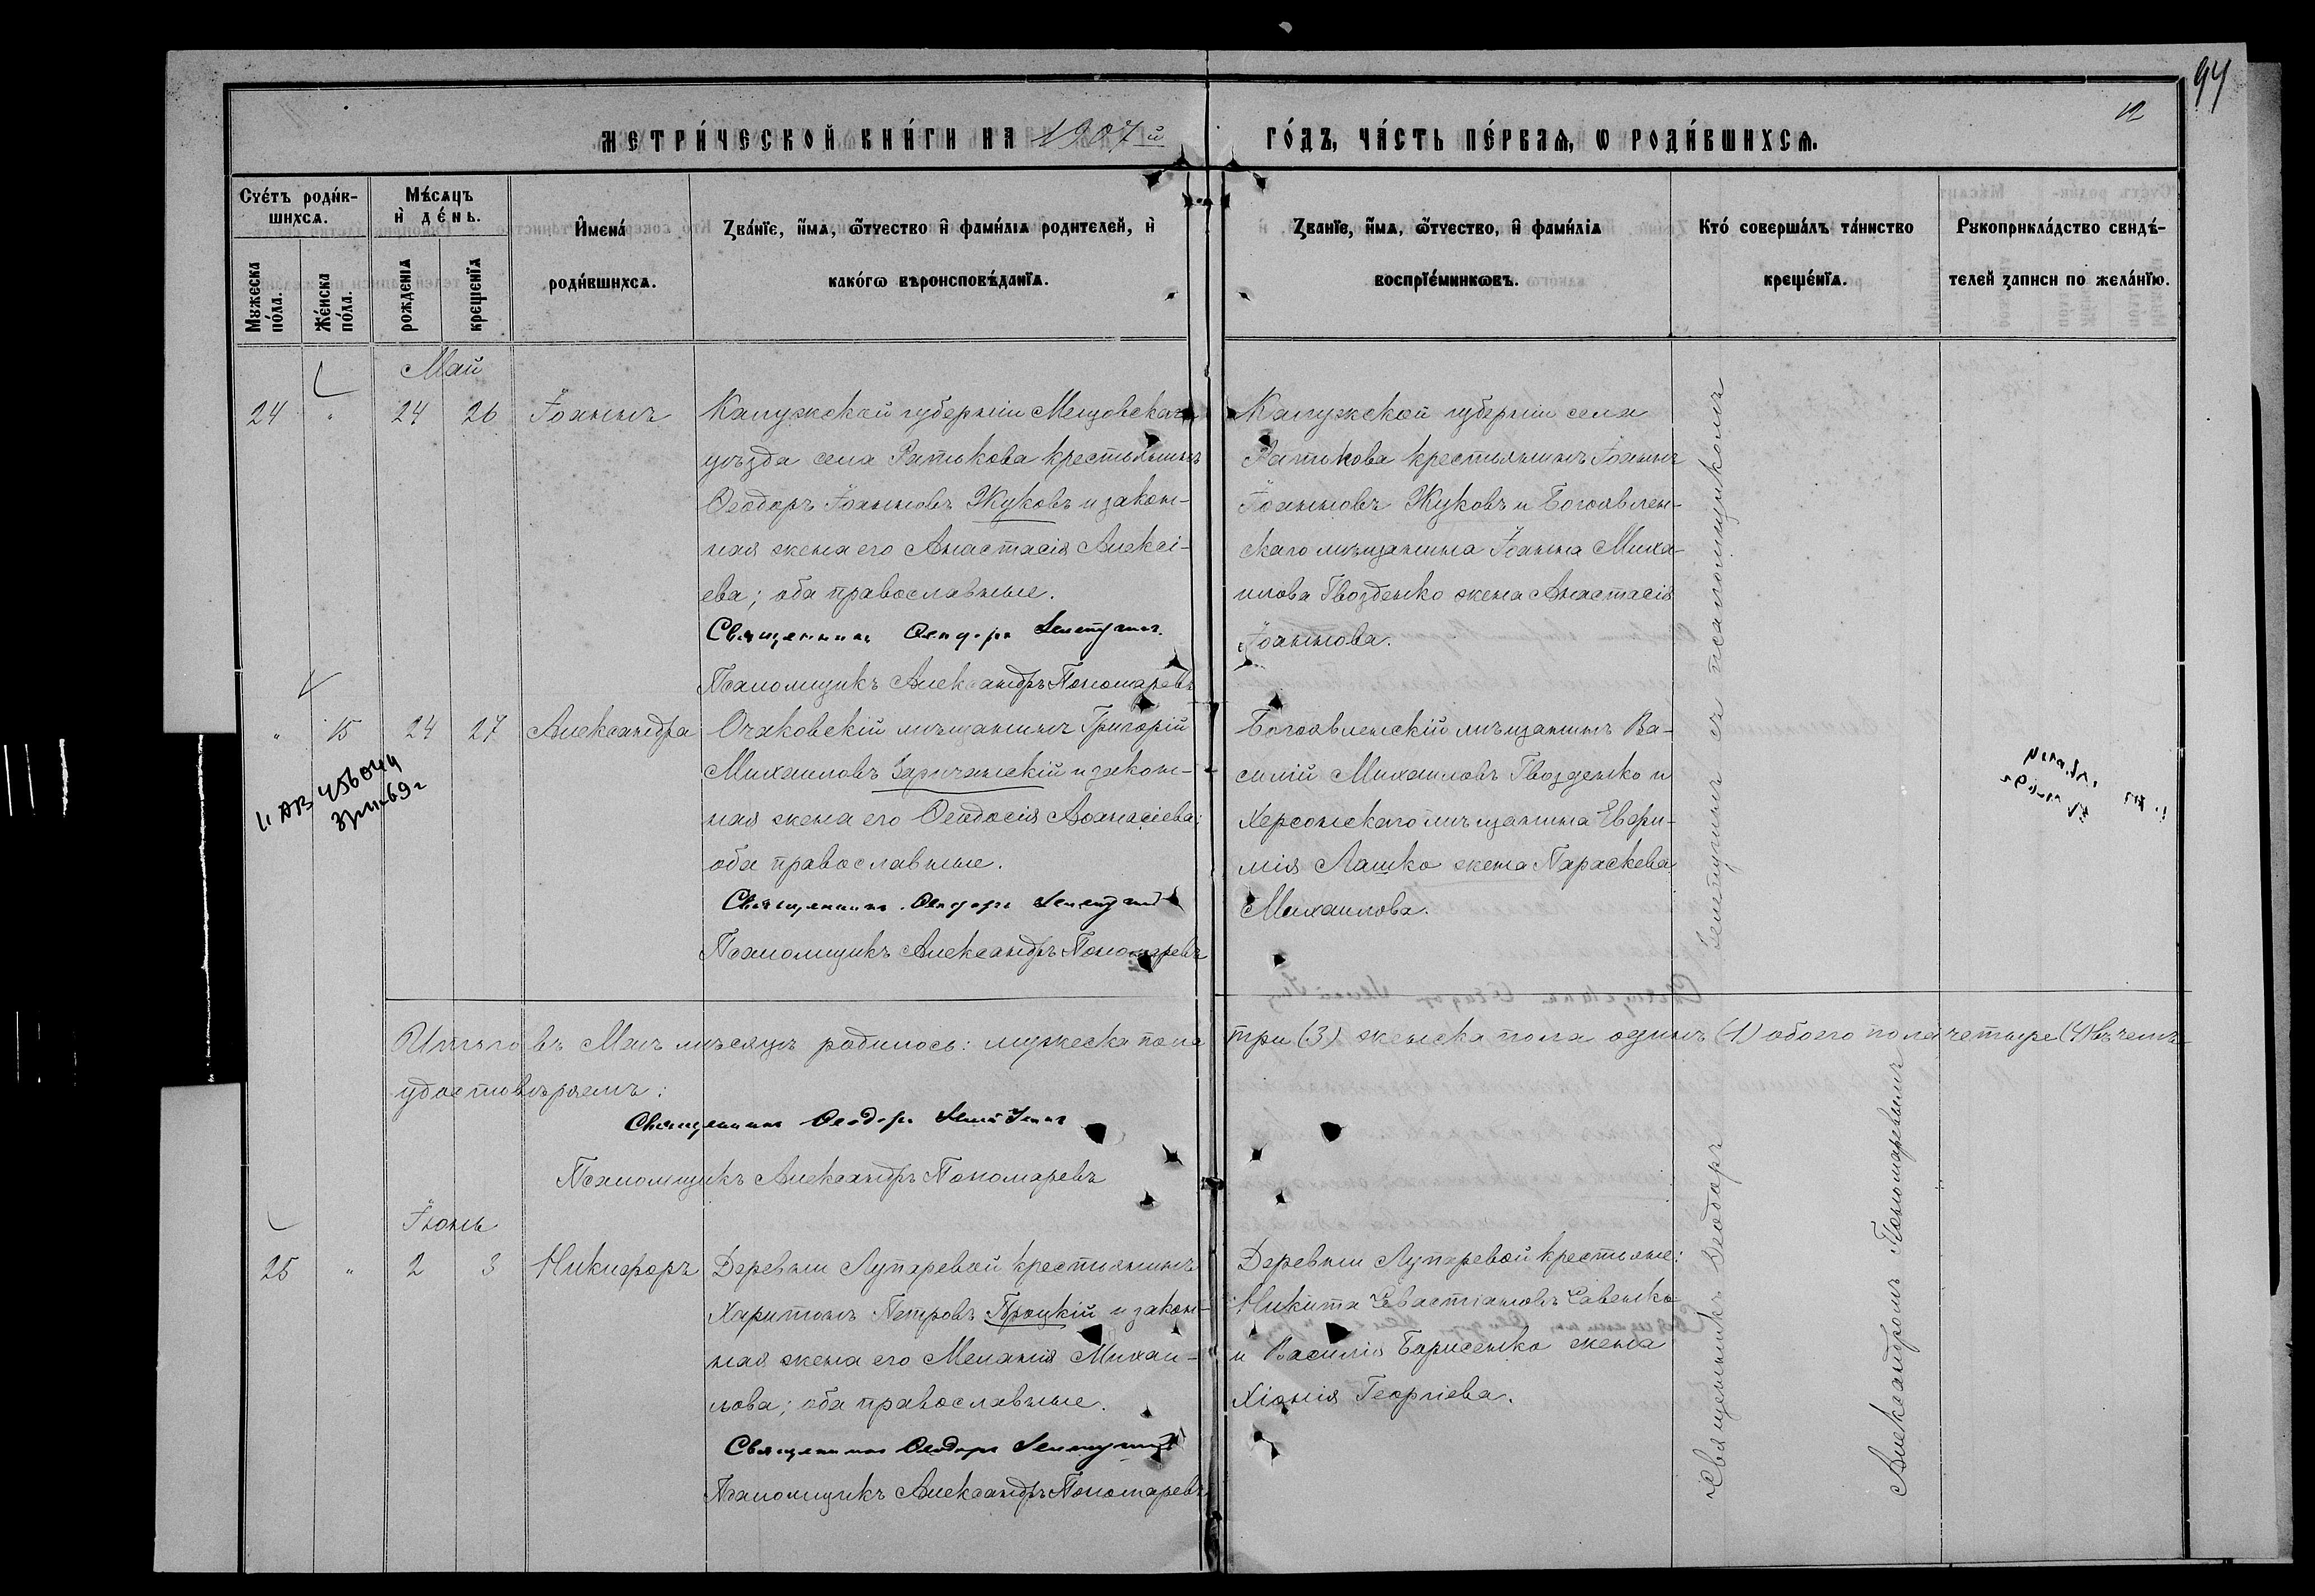 94
12
МЕТРИ́ЧЕСКОЙ КНИ́ГИ НА 1907й ГО́ДЪ, ЧА́СТЬ ПЕ́РВАѦ, Ѡ РОДИ́ВШИХСѦ.
Счетъ роди́вшихсѧ.
Мѣ́сѧцъ и҆ де́нь.
Мꙋжеска по́ла.
Же́нска по́ла.
рожденїѧ
крещенїѧ
И҆мена́ роди́вшихсѧ.
Зва́нїе, и҆́мѧ, ѻ҆́тчество и҆ фами́лїѧ родителей, и҆ како́гѡ вѣроисповѣ́данїѧ.
Званїе, и҆́мѧ, ѻ҆́тчество, и҆ фами́лїѧ воспрїе́мникѡвъ.
Кто́ соверша́лъ та́инство креще́нїѧ.
Рꙋкоприкла́дство свидѣ́телей записи по жела́нїю.
Май
24 " 24 26 Іоаннъ
Калужской губерніи Мещовскаго
уѣзда села Ратькова крестьянинъ
Ѳеодоръ Іоанновъ Жуковъ и закон-
ная жена его Анастасія Алексі-
ева; оба православные.
Священникъ Ѳеодоръ
Псаломщикъ Александръ Пономаревъ
Калужской губерніи села
Ратькова крестьянинъ Іоаннъ
Іоанновъ Жуковъ и Богоявлен-
скаго мѣщанина Іоанна Миха-
илова Гвозденко жена Анастасія
Іоаннова.
" 15 24 27 Александра
Очаковскій мѣщанинъ Григорій
Михаиловъ Заричанскій и закон-
ная жена его Ѳеодосія Аѳанасіева;
оба православные.
Священникъ Ѳеодоръ
Псаломщикъ Александръ Пономаревъ
Богоявленскій мѣщанинъ Ва-
силій Михаиловъ Гвозденко и
Херсонскаго мѣщанина Евфи-
мія Лашко жена Параскева
Михаилова.
Итого въ Маѣ мѣсяцѣ родилось: мужеска пола три (3) женска пола одинъ (1) обоего пола четыре (4) въ чемъ
удостовѣряемъ:
Священникъ Ѳеодоръ
Псаломщикъ Александръ Пономаревъ
Іюнь
25 " 2 3 Никифоръ
Деревни Лупаревой крестьянинъ
Харитонъ Петровъ Троцкій и закон-
ная жена его Меланія Михаи-
лова; оба православные.
Священникъ Ѳеодоръ
Псаломщикъ Александръ Пономаревъ
Деревни Лупаревой крестьяне:
Никита Севастіановъ Савенко
и Василія Борисенко жена
Хіонія Георгіева.
Священникъ Ѳеодоръ
съ псаломщикомъ
Александромъ Пономаревымъ